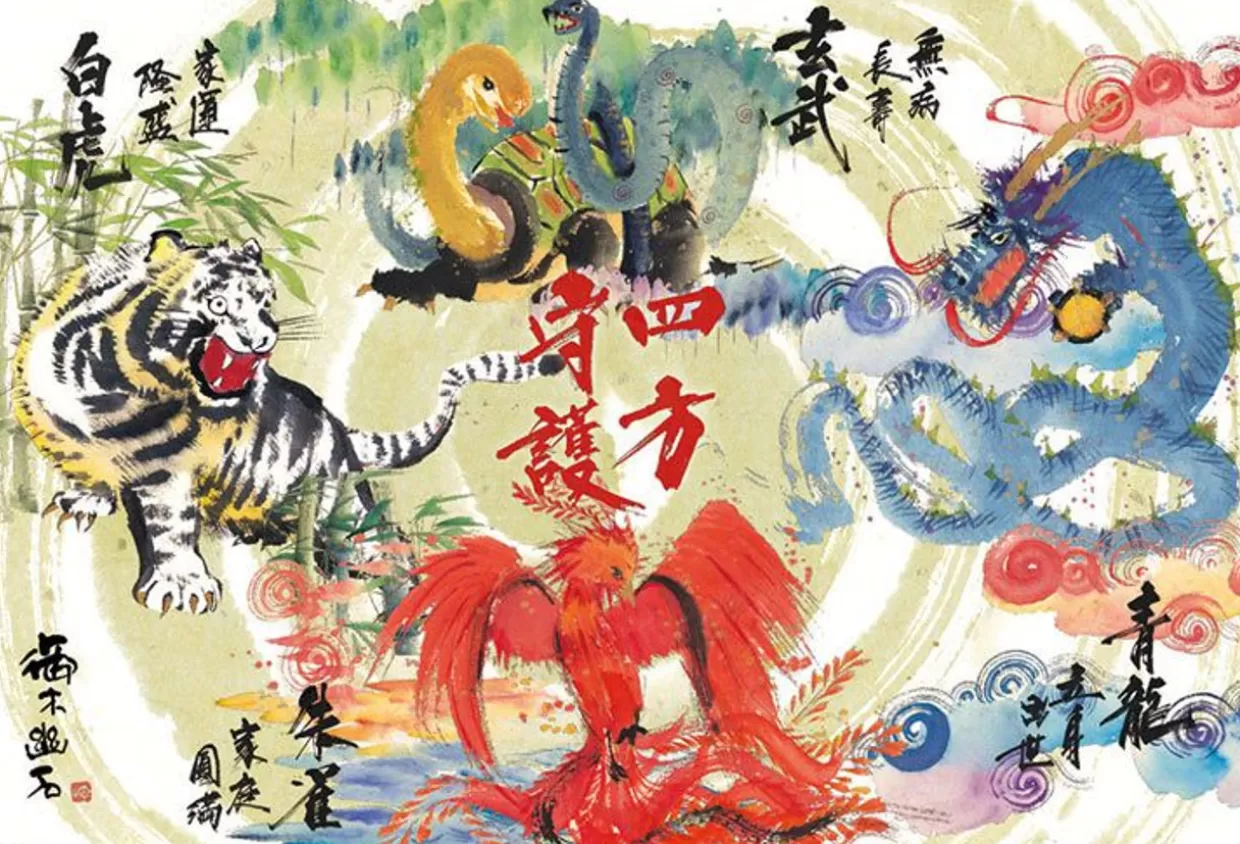 白虎
家運
隆盛
玄武
無病
長壽
四方
守護
青龍
立身
出世
朱雀
家庭
圓満
木幽石